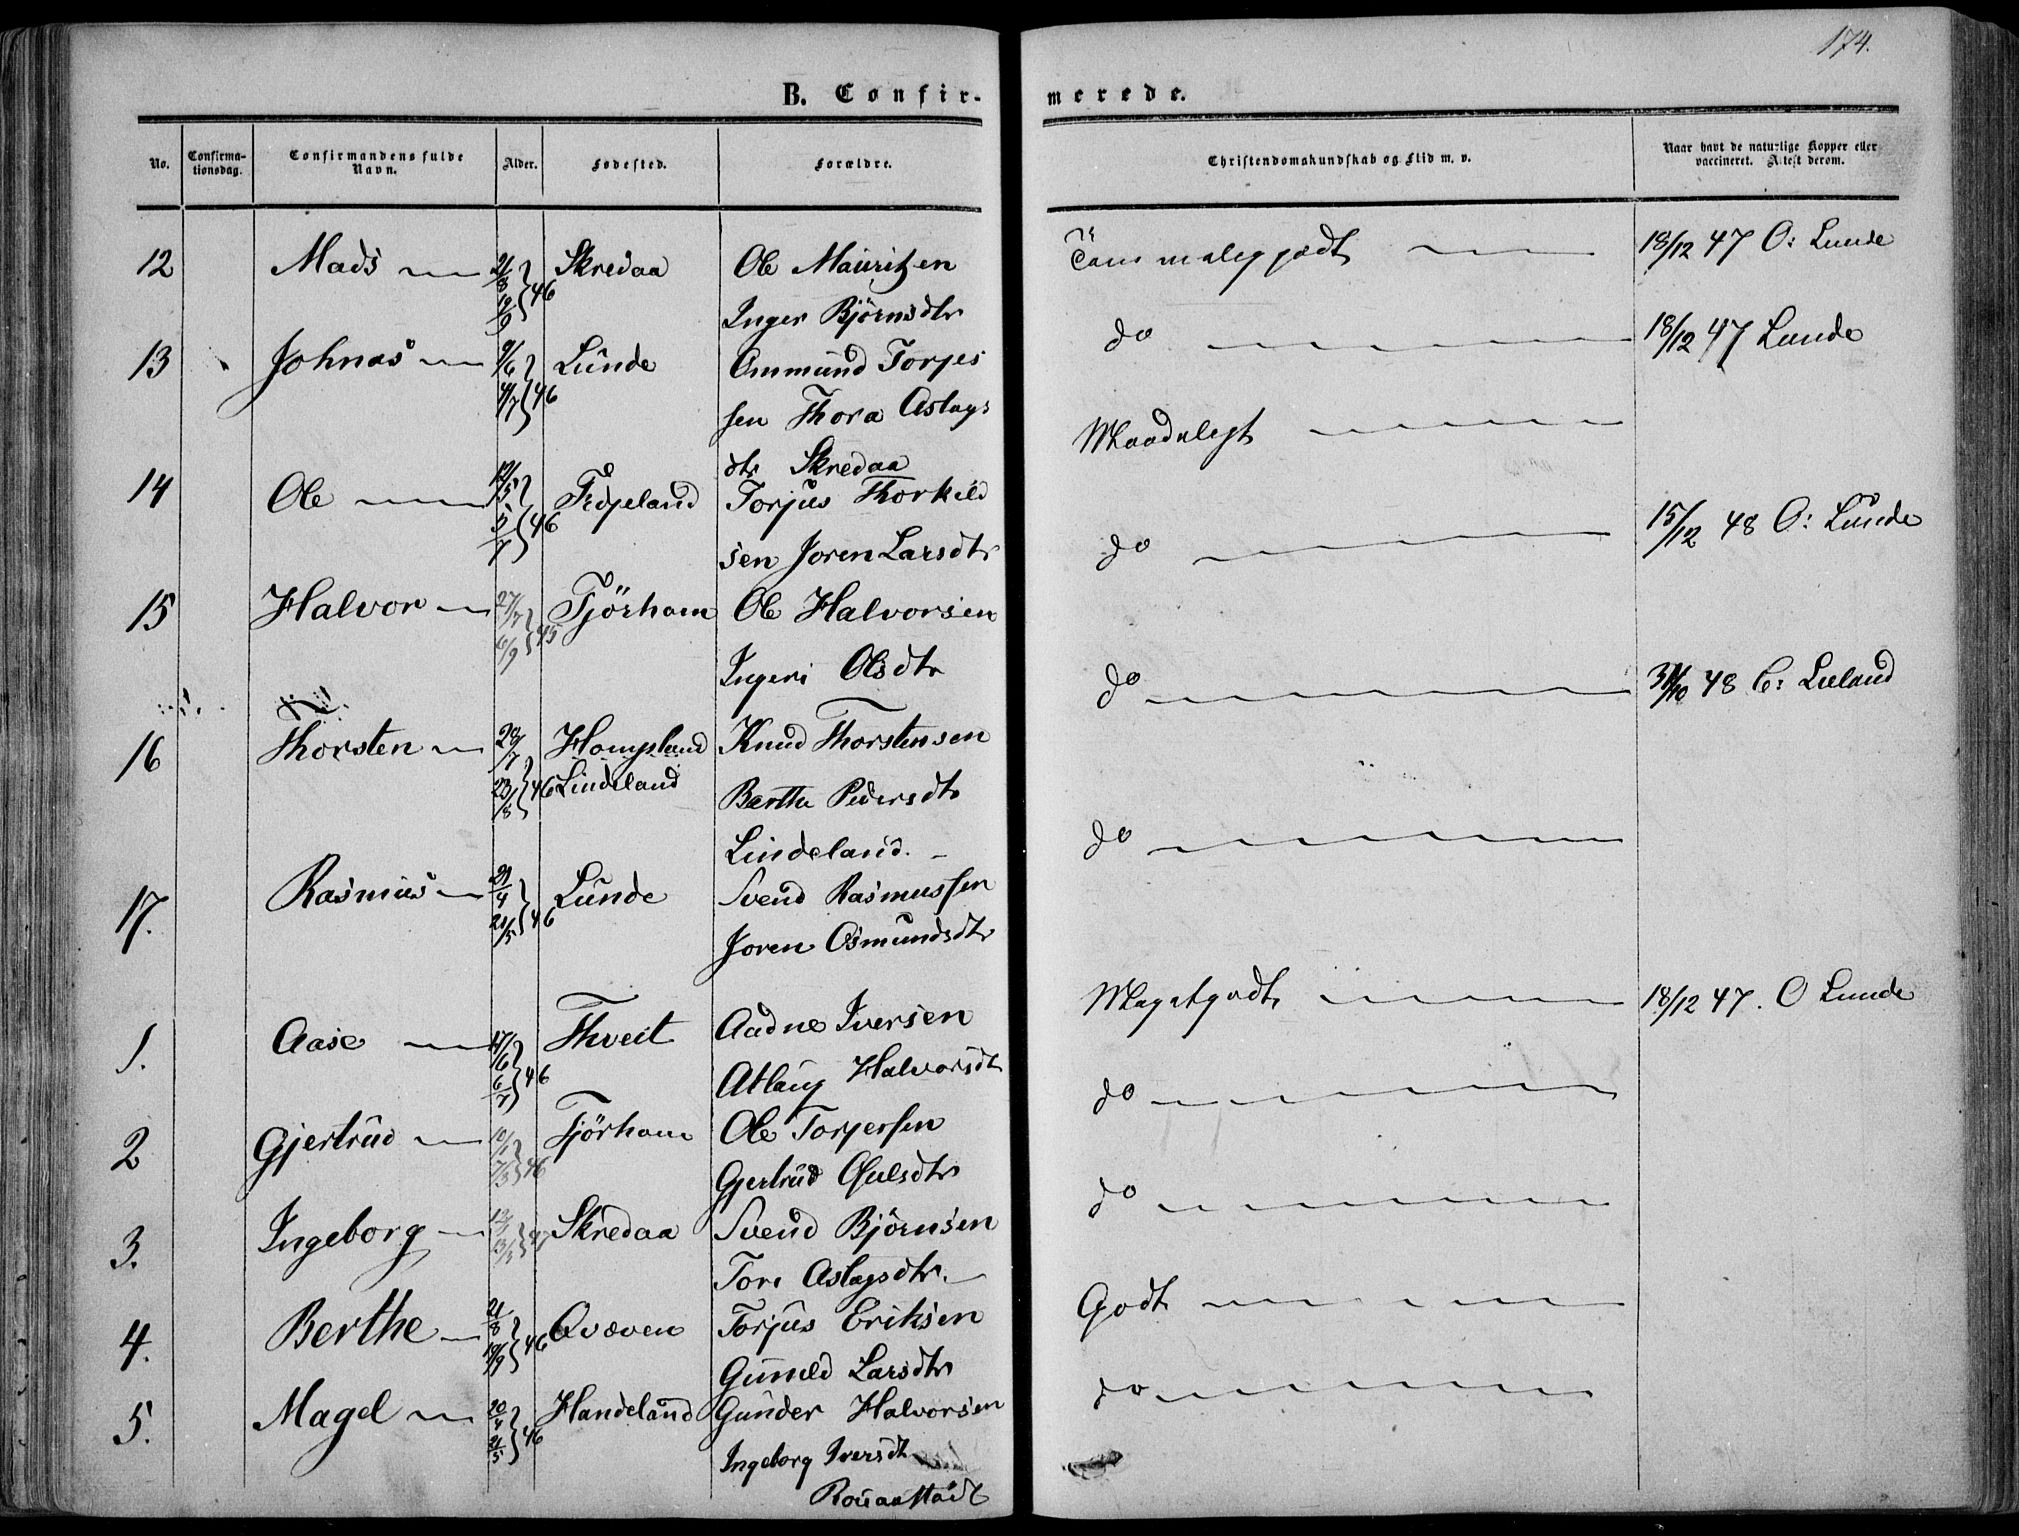 174.
B. Confirmerede.
No. Confirma-tionsdag. Confirmandens fulde Navn. Alder. Fødested. Forældre. Christendomskundskab og Flid m. v. Naar havt de naturlige Kopper eller vaccineret. Attest derom.
12 Mads 21/8 19/9 } 46 Skredaa Ole Mauritzen
Inger Bjørnsdtr
Temmeleg godt 18/12 47 O: Lunde
13 Johnas 9/6 4/7 } 46 Lunde Ommund Torjes
sen Thora Aslags
dtr Skredaa
do 18/12 47 Lunde
14 Ole 12/5 5/7 } 46 Torjus Thorkild
sen Joren Larsdtr
Maadelegt
15 Halvor 27/7 6/9 } 45 Tjörhom Ole Halvorsen
Ingeri Olsdtr
do 15/12 48 O: Lunde
16 Thorsten 28/7 23/8 } 46 Hompland
Lindeland
Knud Thorstensen
Berthe Pedersdtr
Lindeland.
do 31/10 48 Lieland
17. Rasmus 29/4 21/5 } 46 Lunde Svend Rasmussen
Joren Osmundsdtr
do
1. Aase 14/6 6/7 } 46 Thveit Aadne Iversen
Atlaug Halvorsdtr
Megetgodt 18/12 47. O Lunde
2 Gjertrud 10/1 7/3 } 46 Tjörhom Ole Torjersen
Gjertrud
do
3. Ingeborg } 47 Skredaa Svend Björnsen
Tore Aslagsdtr.
do
4. Berthe 21/8 19/9 } 46 Qvæven Torjus Eriksen
Guneld Larsdtr
Godt
5. Magel 20/4 21/5 } 46 Handeland Gunder Halvorsen
Ingeborg Iversdt
do